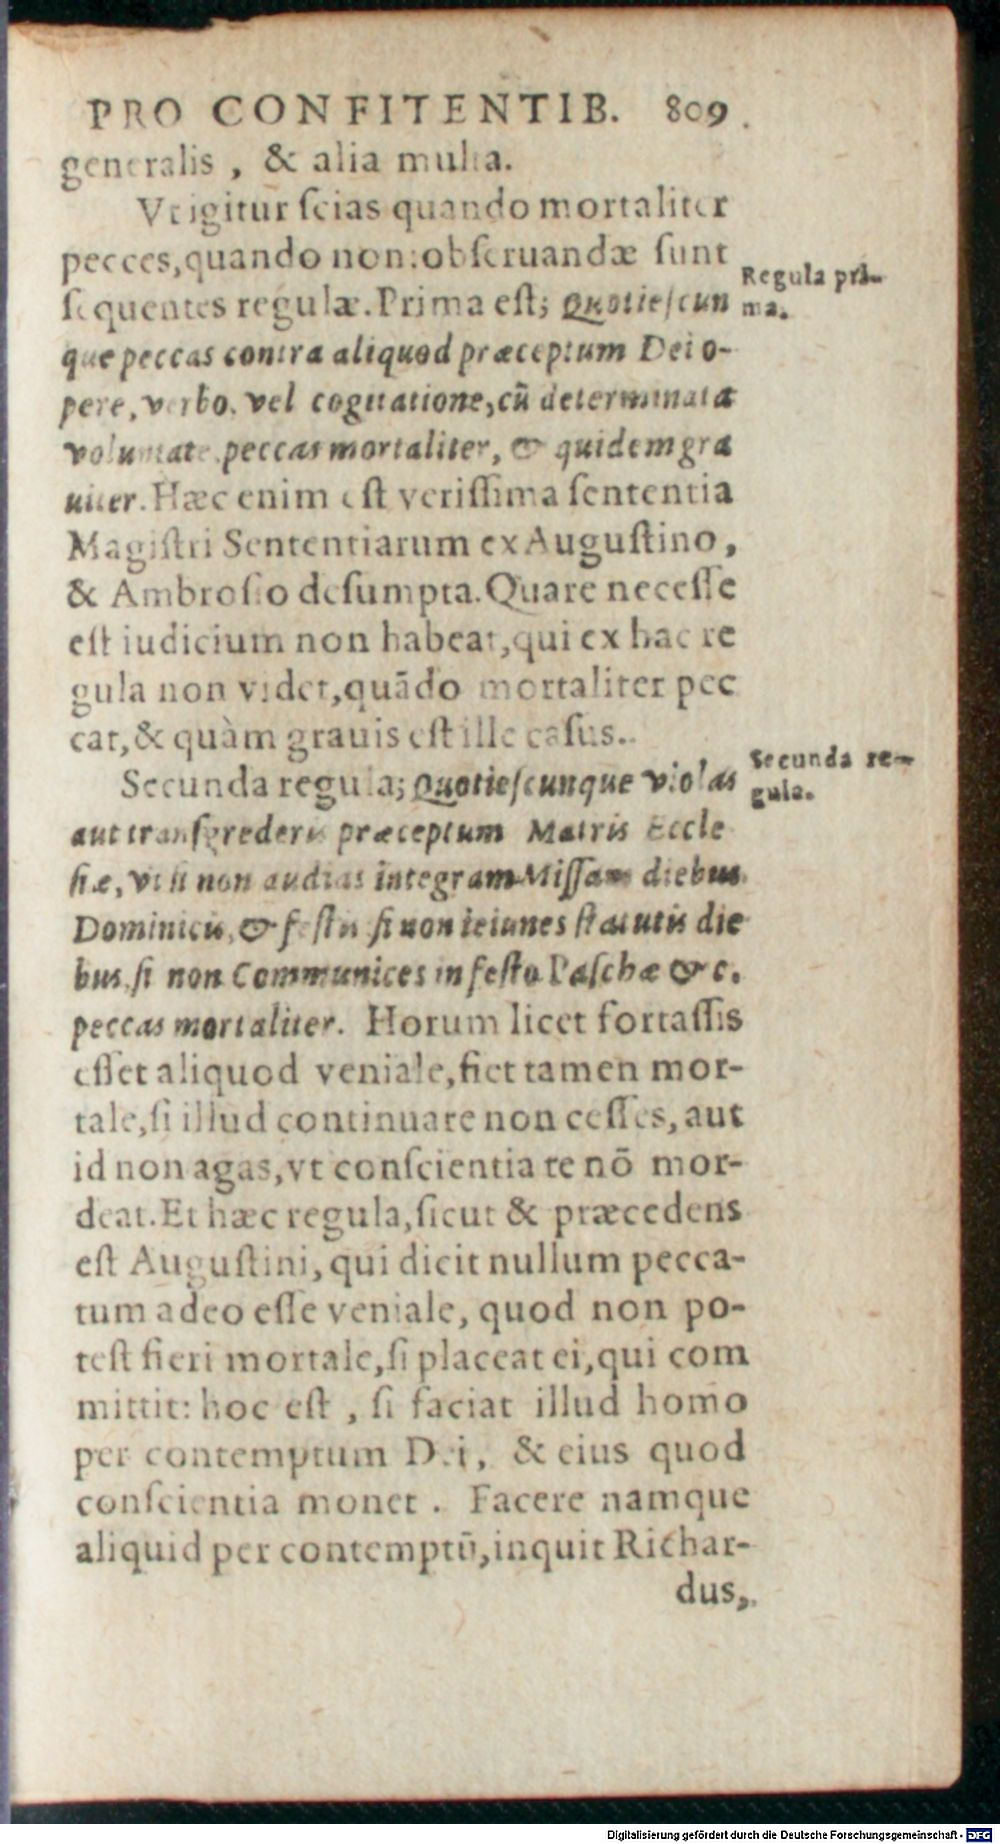 PRO CONFITENTIB. 809
generalis, & alia multa.
Vt igitur ſcias quando mortaliter
pecces, quando non: obſeruandæ ſunt
ſequentes regulæ. Prima eſt; Quotieſcun
Regula pri-
ma.
que peccas contra aliquod præceptum Dei o-
pere, verbo, vel cogitatione, cū determinata
voluntate peccas mortaliter, & quidem gra
uiter. Hæc enim eſt veriſſima ſententia
Magiſtri Sententiarum ex Auguſtino,
& Ambroſio deſumpta. Quare neceſſe
eſt iudicium non habeat, qui ex hac re
gula non videt, quādo mortaliter pec
cat, & quàm grauis eſt ille caſus.
Secunda regula; Quotieſcunque violas
Secunda re-
gula.
aut tranſgrederis præceptum Matris Eccle
ſiæ, vt ſi non audias integram Miſſam diebus
Dominicis, & feſtis ſi non ieiunes ſtatutis die
bus, ſi non Communices in feſto Paſchæ &c.
peccas mortaliter. Horum licet fortaſſis
eſſet aliquod veniale, fiet tamen mor-
tale, ſi illud continuare non ceſſes, aut
id non agas, vt conſcientia te nō mor-
deat. Et hæc regula, ſicut & præcedens
eſt Auguſtini, qui dicit nullum pecca-
tum adeo eſſe veniale, quod non po-
teſt fieri mortale, ſi placeat ei, qui com
mittit: hoc eſt, ſi faciat illud homo
per contemptum Dei, & eius quod
conſcientia monet. Facere namque
aliquid per contemptū, inquit Richar-
dus,
Digitalisierung gefördert durch die Deutsche Forschungsgemeinschaft - DFG